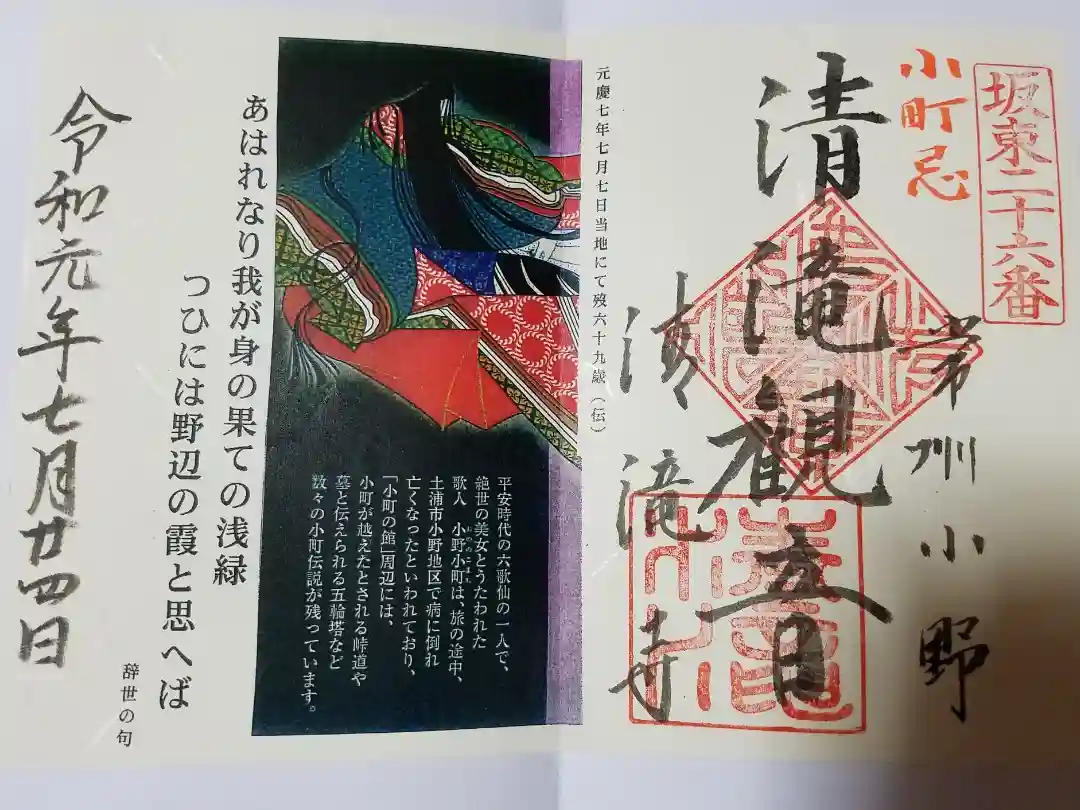 坂東二十六番
小町忌
常州小野
清滝観音
清滝寺
元慶七年七月七日当地にて歿六十九歳(伝)
平安時代の六歌仙の一人で、
絶世の美女とうたわれた
歌人 小野小町は、旅の途中、
土浦市小野地区で病に倒れ
亡くなったといわれており、
「小町の館」周辺には、
小町が越えたとされる峠道や
墓と伝えられる五輪塔など
数々の小町伝説が残っています。
あはれなり我が身の果ての浅緑
つひには野辺の霞と思へば
辞世の句
令和元年七月廿四日